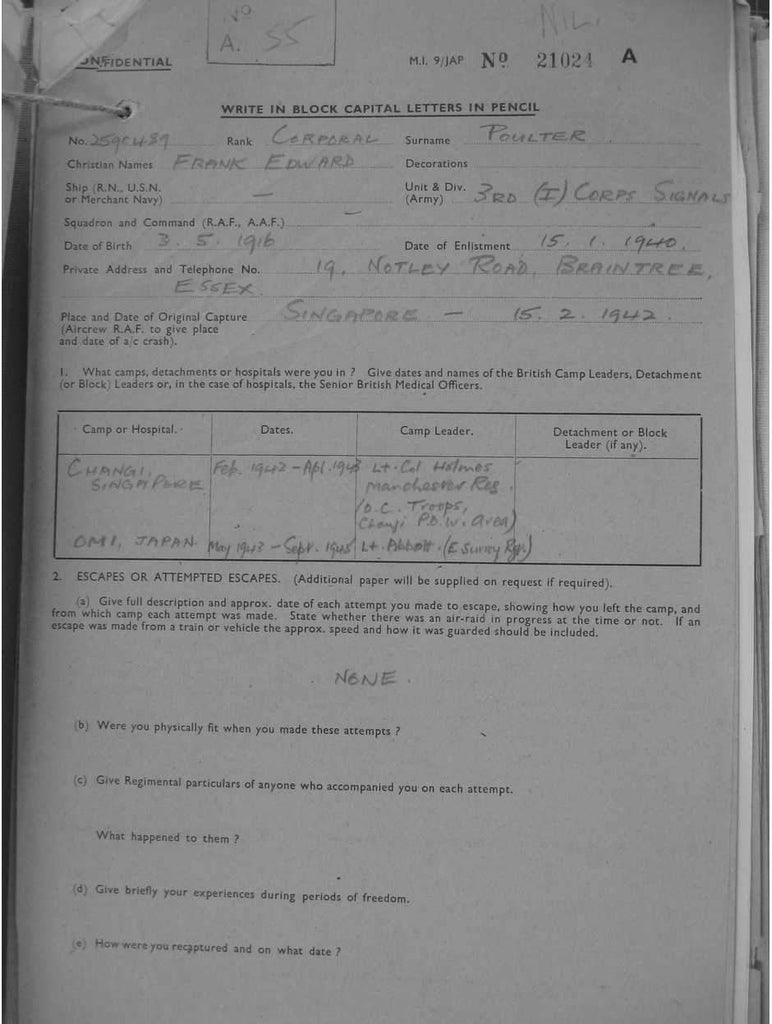 No
A. 55
NIL.
CONFIDENTIAL
M.I. 9/JAP No 21024 A
WRITE IN BLOCK CAPITAL LETTERS IN PENCIL
No. Rank CORPORAL Surname POULTER
Christian Names FRANK EDWARD Decorations
Ship (R.N., U.S.N. or Merchant Navy) — Unit & Div. (Army) 3RD (I) CORPS SIGNALS
Squadron and Command (R.A.F., A.A.F.) —
Date of Birth 3. 5. 1916 Date of Enlistment 15. 1. 1940.
Private Address and Telephone No. 19, NOTLEY ROAD, BRAINTREE,
ESSEX.
Place and Date of Original Capture SINGAPORE — 15. 2. 1942.
(Aircrew R.A.F. to give place
and date of a/c crash).
1. What camps, detachments or hospitals were you in ? Give dates and names of the British Camp Leaders, Detachment
(or Block) Leaders or, in the case of hospitals, the Senior British Medical Officers.
Camp or Hospital. Dates. Camp Leader. Detachment or Block
Leader (if any).
CHANGI, Feb. 1942 - Apl. 1943 Lt-Col Holmes
SINGAPORE Manchester Reg.
(O.C. Troops,
Changi P.O.W. area)
OMI, JAPAN. May 1943 - Sept. 1945 Lt. Abbott. (E Survey)
2. ESCAPES OR ATTEMPTED ESCAPES. (Additional paper will be supplied on request if required).
(a) Give full description and approx. date of each attempt you made to escape, showing how you left the camp, and
from which camp each attempt was made. State whether there was an air-raid in progress at the time or not. If an
escape was made from a train or vehicle the approx. speed and how it was guarded should be included.
NONE.
(b) Were you physically fit when you made these attempts ?
(c) Give Regimental particulars of anyone who accompanied you on each attempt.
What happened to them ?
(d) Give briefly your experiences during periods of freedom.
(e) How were you recaptured and on what date ?